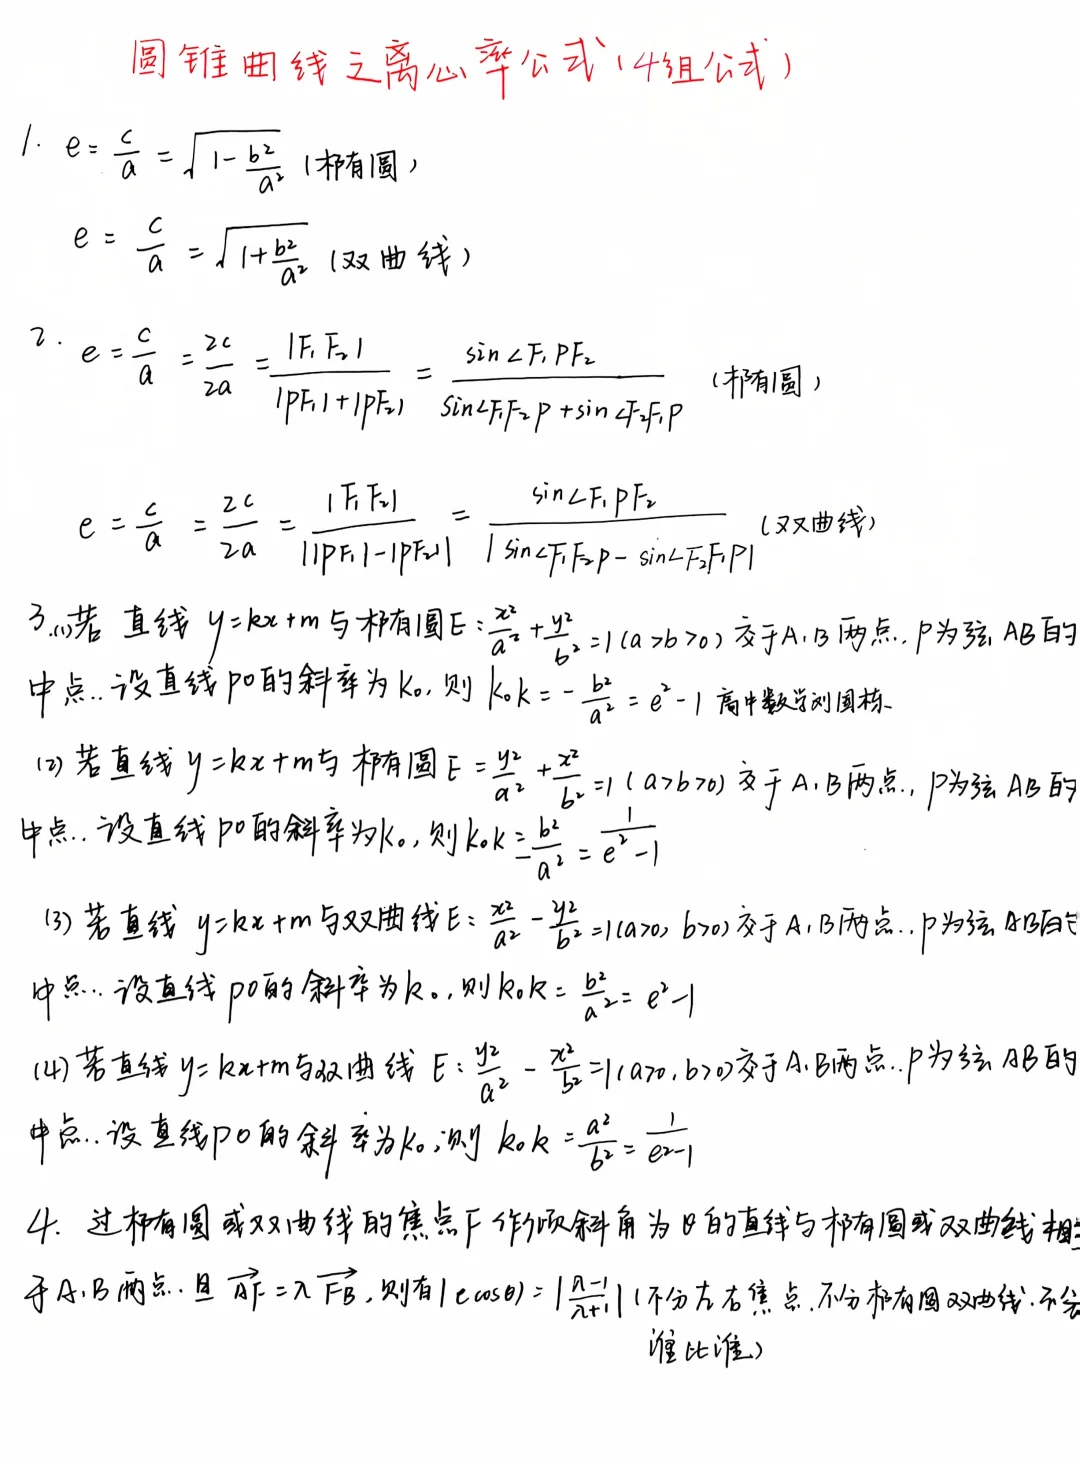 圆锥曲线之离心率公式(4组公式)
1. e = c/a = √(1 - b²/a²) (椭圆)
e = c/a = √(1 + b²/a²) (双曲线)
2. e = c/a = 2c/2a = |F₁F₂|/(|PF₁|+|PF₂|) = sin∠F₁PF₂/(sin∠F₁F₂P + sin∠F₂F₁P) (椭圆)
e = c/a = 2c/2a = |F₁F₂|/||PF₁|-|PF₂|| = sin∠F₁PF₂/|sin∠F₁F₂P - sin∠F₂F₁P| (双曲线)
3.(1)若直线 y=kx+m与椭圆E: x²/a² + y²/b² =1(a>b>0)交于A,B两点.,P为弦AB的
中点..设直线PO的斜率为k₀,则 k₀k = -b²/a² = e²-1 高中数学刘国栋
(2)若直线y=kx+m与椭圆E = y²/a² + x²/b² =1(a>b>0)交于A,B两点.,P为弦AB的
中点..设直线PO的斜率为k₀,则k₀k = -b²/a² = 1/(e²-1)
(3)若直线 y=kx+m与双曲线E: x²/a² - y²/b² =1(a>0, b>0)交于A,B两点..P为弦AB的
中点...设直线PO的斜率为k₀.,则k₀k = b²/a² = e²-1
(4)若直线y=kx+m与双曲线 E: y²/a² - x²/b² =1(a>0,b>0)交于A.B两点..P为弦AB的
中点..设直线PO的斜率为k₀,则 k₀k = a²/b² = 1/(e²-1)
4. 过椭圆或双曲线的焦点F作倾斜角为θ的直线与椭圆或双曲线相交
于A,B两点.且 →AF = λ →FB,则有|ecosθ| = |(λ-1)/(λ+1)| (不分左右焦点.不分椭圆双曲线.不分
谁比谁)